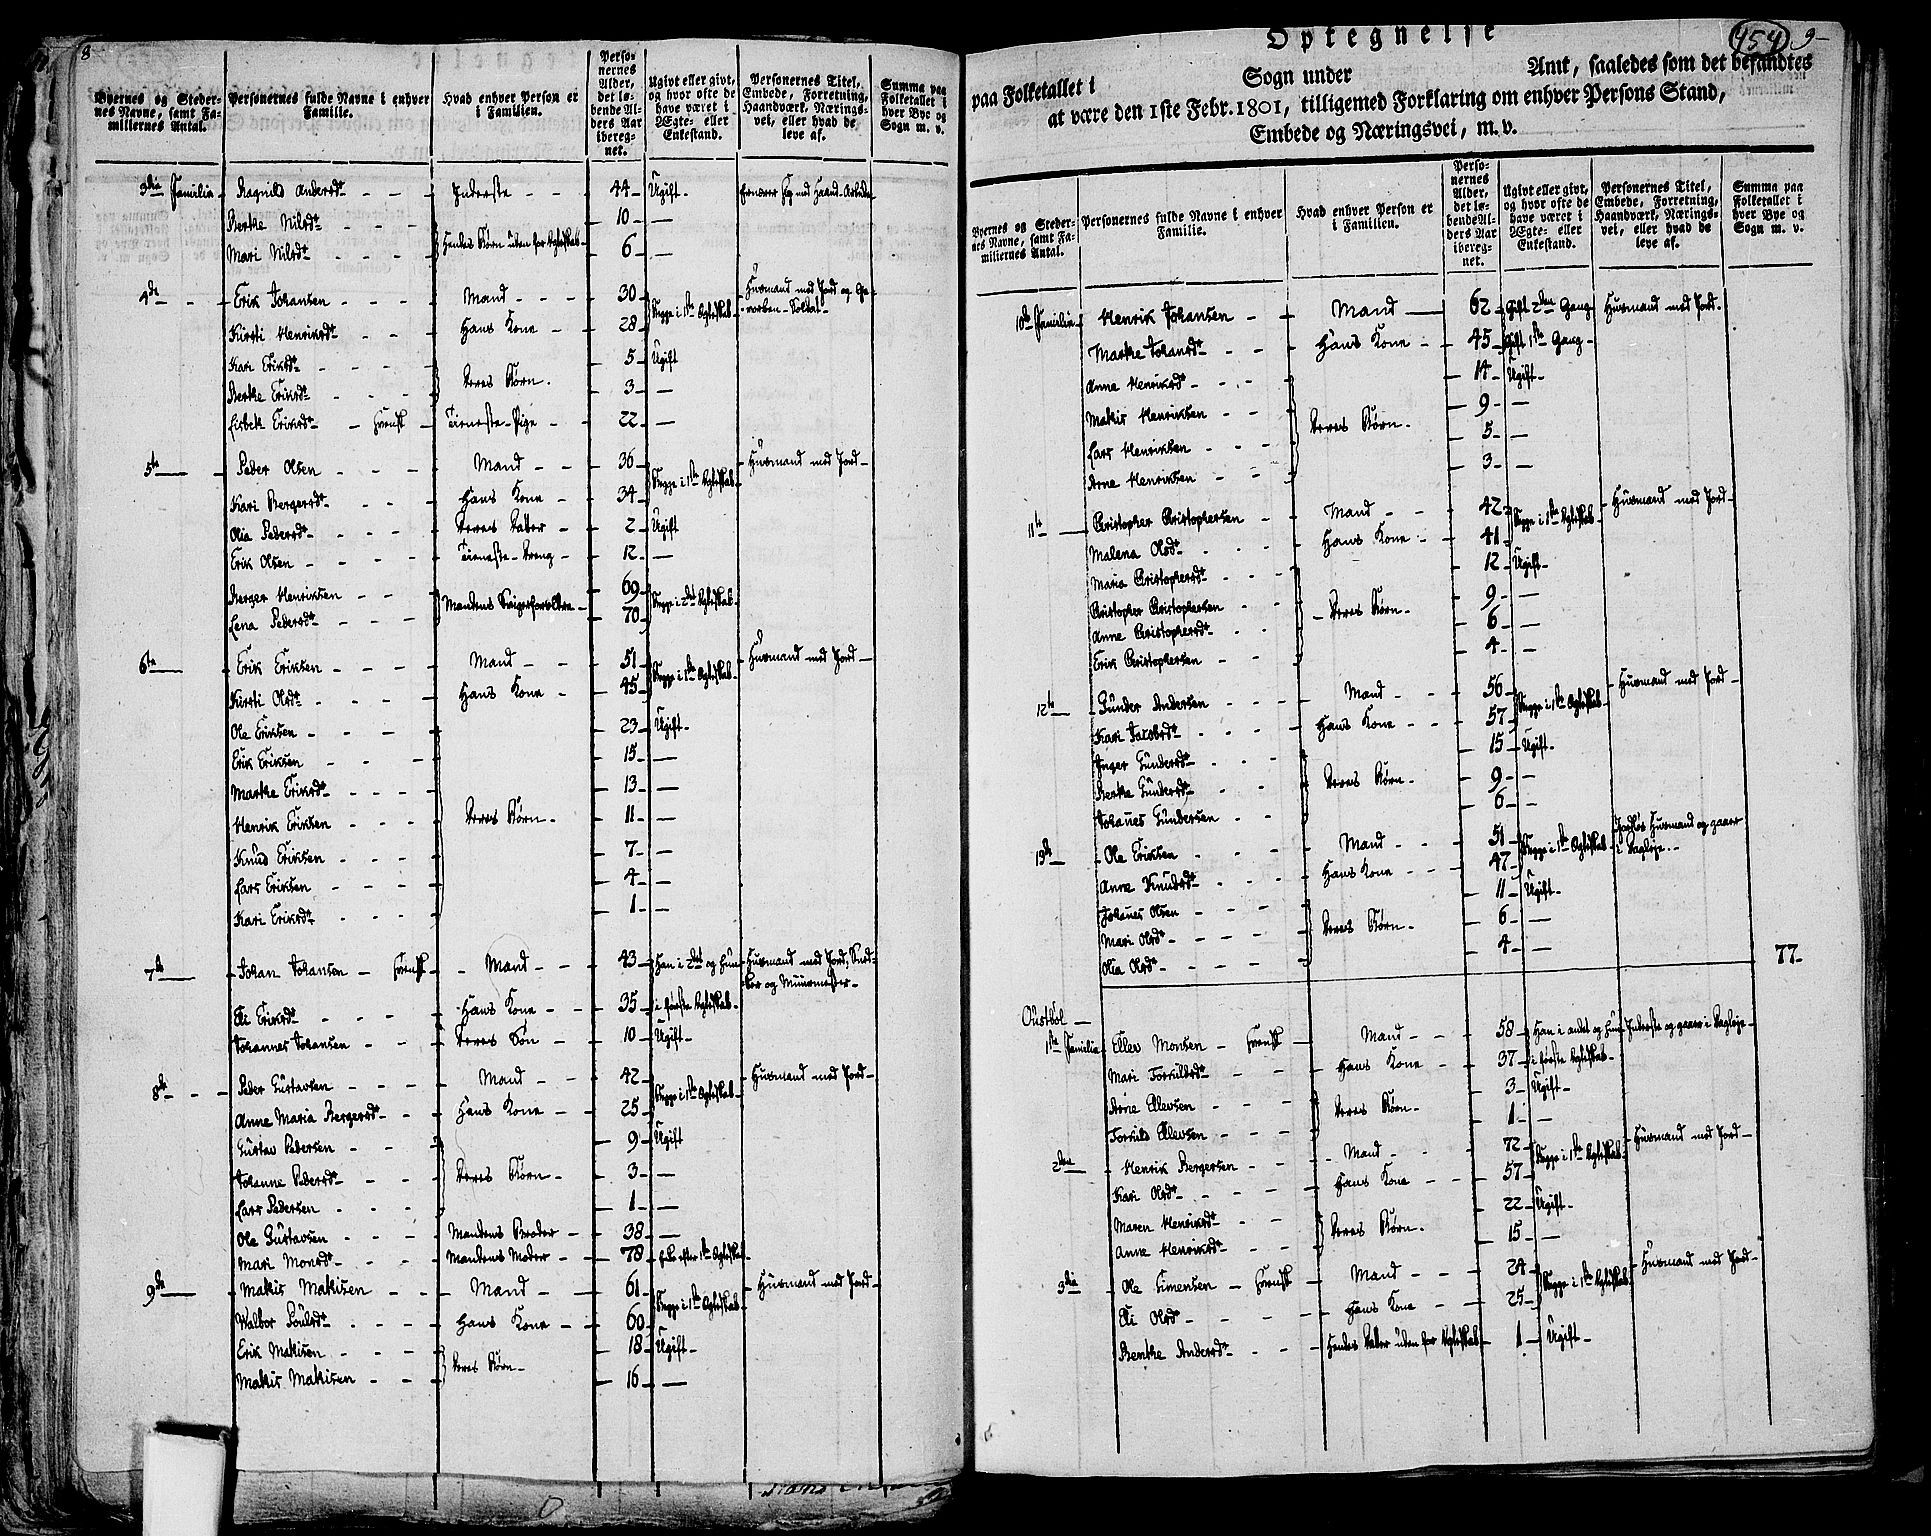 8
Byernes og Steder-
nes Navne, samt Fa-
miliernes Antal.
Personernes fulde Navne i enhver
Familie.
Hvad enhver Person er
i Familien.
Perso-
nernes
Alder,
det lø-
bende Al-
ders Aar
ibereg-
net.
Ugivt eller givt,
og hvor ofte de
have været i
Ægte- eller
Enkestand.
Personernes Titel,
Embede, Forretning,
Haandværk, Nærings-
vei, eller hvad de
leve af.
Summa paa
Folketallet i
hver Bye og
Sogn m. v.
3die Familie Ragnild Andersdt Inderste 44 Ugift ernærer sig ved Haand-Arbeide
Berthe Nilsdt 10 —
Mari Nilsdt Hendes Børn uden for Ægteskab 6 —
4de Erik Johansen Mand 30 Begge i 1ste Ægteskab Huusmand med Jord og Ge-
vorben Soldat
Kirsti Henriksdt Hans Kone 28
Kari Eriksdt 5 Ugift
Berthe Eriksdt Deres Børn 3 —
Lisbek Eriksdt Svensk Tieneste-Pige 22 —
5te Peder Olsen Mand 36 Begge i 1ste Ægteskab Huusmand med Jord
Kari Bergersdt Hans Kone 34
Olia Pedersdt Deres Datter 2 Ugift
Erik Olsen Tieneste-Dreng 12 —
Berger Henriksen Mandens Svigerforældre 69 Begge i 2det Ægteskab
Lena Pedersdt 70
6te Erik Eriksen Mand 51 Begge i 1ste Ægteskab Huusmand med Jord
Kirsti Olsdt Hans Kone 45
Ole Eriksen 23 Ugift
Erik Eriksen 15 —
Marthe Eriksdt 13 —
Henrik Eriksen Deres Børn 11 —
Knud Eriksen 7 —
Lars Eriksen 4 —
Kari Eriksdt 1 —
7de Johan Johansen Svensk Mand 43 Han i 2det og hun Huusmand med Jord, Sned-
ker og Muurmester
Eli Eriksdt Hans Kone 35 i første Ægteskab
Johannes Johansen Deres Søn 10 Ugift
8de Peder Gustavsen Mand 42 Begge i 1ste Ægteskab Huusmand med Jord
Anne Maria Bergersdt Hans Kone 25
Gustav Pedersen 9 Ugift
Johanne Pedersdt Deres Børn 3 —
Lars Pedersen 1 —
Ole Gustavsen Mandens Broder 38 —
Mari Monsdt Mandens Moder 78 Enke efter 1ste Ægteskab
9de Makis Makisen Mand 61 Begge i 1ste Ægteskab Huusmand med Jord
Walbor Poulsdt Hans Kone 60
Erik Makisen Deres Børn 18 Ugift
Makis Makisen 16 —
Optegnelse
454 9
paa Folketallet i Sogn under Amt, saaledes som det befandtes
at være den 1ste Febr. 1801, tilligemed Forklaring om enhver Persons Stand,
Embede og Næringsvei, m. v.
Byernes og Steder-
nes Navne, samt Fa-
miliernes Antal.
Personernes fulde Navne i enhver
Familie.
Hvad enhver Person er
i Familien.
Perso-
nernes
Alder,
det lø-
bende Al-
ders Aar
ibereg-
net.
Ugivt eller givt,
og hvor ofte de
have været i
Ægte- eller
Enkestand.
Personernes Titel,
Embede, Forretning,
Haandværk, Nærings-
vei, eller hvad de
leve af.
Summa paa
Folketallet i
hver Bye og
Sogn m. v.
10de Familie Henrik Johansen Mand 62 Gift 2den Gang Huusmand med Jord
Marthe Johansdt Hans Kone 45 Gift 1ste Gang
Anne Henriksdt 14 Ugift
Makis Henriksen 9 —
Lars Henriksen Deres Børn 5 —
Arne Henriksen 3 —
11te Christopher Christophersen Mand 42 Begge i 1ste Ægteskab Huusmand med Jord
Malena Olsdt Hans Kone 41
Maria Christophersdt 12 Ugift
Christopher Christophersen Deres Børn 9 —
Anne Christophersdt 6 —
Erik Christophersen 4 —
12te Gunder Andersen Mand 56 Begge i 1ste Ægteskab Huusmand med Jord
Kari Jacobsdt Hans Kone 57
Inger Gundersdt 15 Ugift
Berthe Gundersdt Deres Børn 9 —
Johannes Gundersen 6 —
13de Ole Eriksen Mand 51 Begge i 1ste Ægteskab Jordløs Huusmand og gaaer
i Dagleje
Anne Knudsdt Hans Kone 47
Johannes Olsen 11 Ugift
Mari Olsdt Deres Børn 6 —
Olia Olsdt 4 —
77
Oustbøl
1ste Familie Ellev Monsen Svensk Mand 58 Han i andet og hun Inderste og gaaer i Dagleje
Mari Torkildsdt Hans Kone 37 i første Ægteskab
Arne Ellevsen Deres Børn 3 Ugift
Torkild Ellevsen 1 —
2den Henrik Bergersen Mand 72 Begge i 1ste Ægteskab Huusmand med Jord
Kari Olsdt Hans Kone 57
Maren Henriksdt Deres Børn 22 Ugift
Anne Henriksdt 15 —
3die Ole Simensen Svensk Mand 24 Begge i 1ste Ægteskab Huusmand med Jord
Eli Olsdt Hans Kone 25
Benthe Andersdt Hendes Datter uden for Ægteskab 1 Ugift